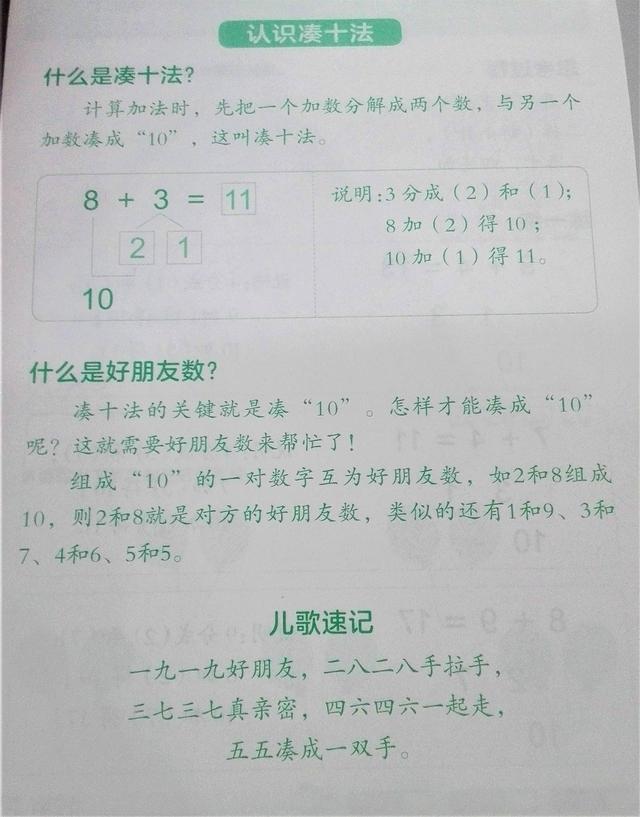 认识凑十法
什么是凑十法？
计算加法时，先把一个加数分解成两个数，与另一个
加数凑成“10”，这叫凑十法。
8 + 3 = 11
2 1
10
说明：3分成（2）和（1）；
8加（2）得10；
10加（1）得11。
什么是好朋友数？
凑十法的关键就是凑“10”。怎样才能凑成“10”
呢？这就需要好朋友数来帮忙了！
组成“10”的一对数字互为好朋友数，如2和8组成
10，则2和8就是对方的好朋友数，类似的还有1和9、3和
7、4和6、5和5。
儿歌速记
一九一九好朋友，二八二八手拉手，
三七三七真亲密，四六四六一起走，
五五凑成一双手。